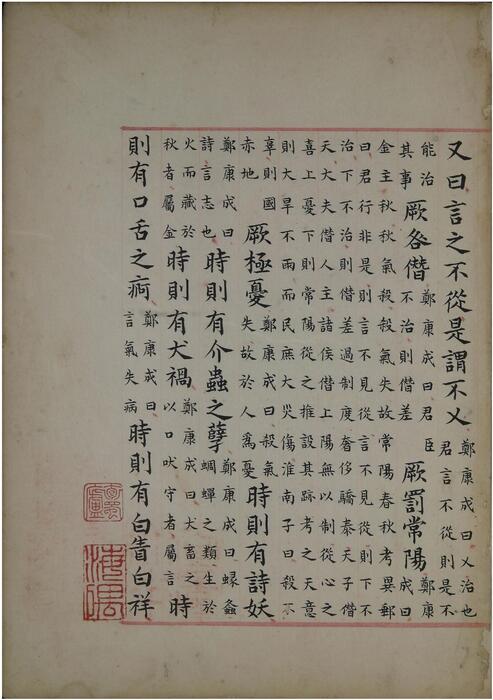 又曰言之不從是謂不乂鄭康成曰乂治也君言不從則是不
能治其事厥咎僭鄭康成曰君臣不治則僭差厥罰常陽鄭康成曰
金主秋秋氣殺殺氣失故常陽春秋考異郵
曰君行非是則言不見從言不見從則下不
治下不治則僭差過制度奢侈驕泰天子僭
天大夫僭人主諸侯僭上陽無以制從心之
喜上憂下則常陽從之推設其跡考之天意
則大旱不雨而民庶大災傷淮南子曰殺不
辜則國赤地厥極憂鄭康成曰殺氣失故於人為憂時則有詩妖
鄭康成曰詩言志也時則有介蟲之孽鄭康成曰蝝螽蜩蟬之類生於
火而藏於秋者屬金時則有犬禍鄭康成曰犬畜之以口吠守者屬言時
則有口舌之痾鄭康成曰言氣失病時則有白眚白祥